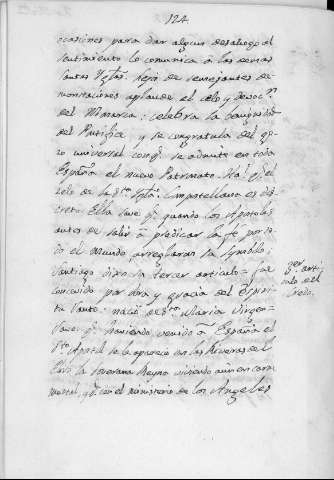 124
ocasiones para dar algun desahogo al
sentimiento lo comunica à las demas
santas Yglas. lejos de semejantes de-
mostraciones aplaude el celo y devocn.
del Monarca: celebra la benignidad
del Pontifice, y se congratula del go-
zo universal con q. se admite en toda
España el nuevo Patronato. Ita! q. el
zelo de la Sta. Ygla. Compostellana es dis-
creto. Ella save q. quando los Apostoles
antes de salir à predicar la fe por to-
do el Mundo arreglaron su Symbolo,
Santiago dixo su tercer articulo = fue
concevido por obra y gracia del Espiri-
tu Santo: nació de Sta. Maria Virgen =
Save q. haviendo venido à España el
Sto. Apostol se le aparecio en las Riveras del
Ebro la Soverana Reyna viviendo aun en carne
mortal, y q. con el ministerio de los Angeles
3er. arti-
culo del
Credo.